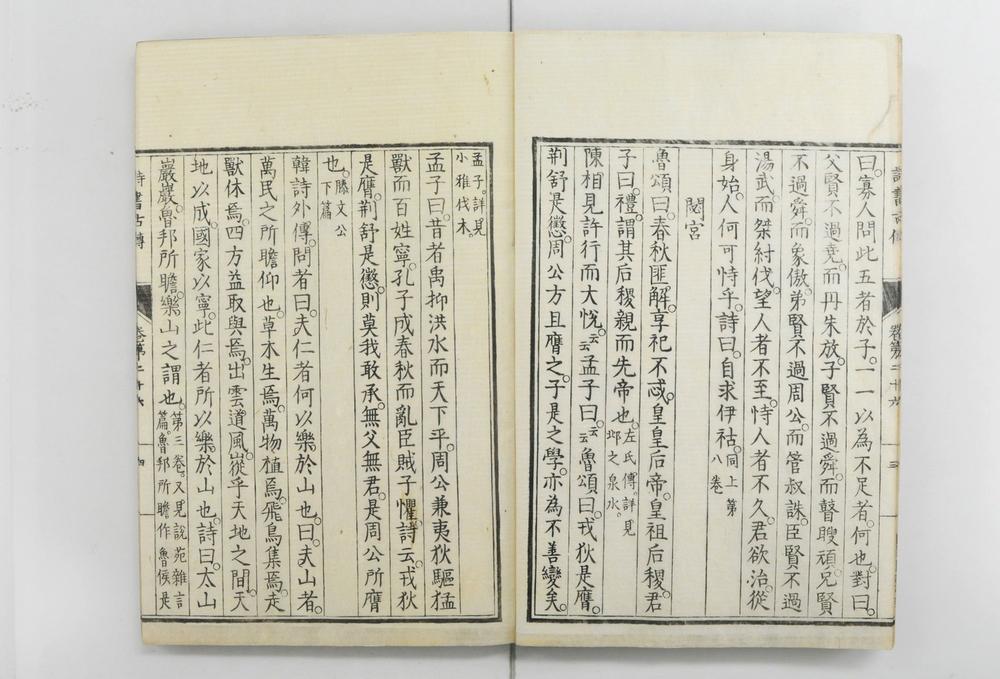 詩書古傳
卷第二十六
三
曰。寡人問此五者於子。一一以為不足者。何也。對曰。
父賢不過堯。而丹朱放。子賢不過舜。而瞽瞍頑。兄賢
不過舜。而象傲。弟賢不過周公。而管叔誅。臣賢不過
湯武。而桀紂伐。望人者不至。恃人者不久。君欲治。從
身始。人何可恃乎。詩曰。自求伊祜。同上第八卷
閟宮
魯頌曰。春秋匪解。享祀不忒。皇皇后帝。皇祖后稷。君
子曰。禮。謂其后稷親而先帝也。左氏傳。詳見邶之泉水。
陳相見許行而大悅。云云孟子曰。云云魯頌曰。戎狄是膺。
荆舒是懲。周公方且膺之。子是之學。亦為不善變矣。
孟子。詳見小雅伐木。
孟子曰。昔者禹抑洪水而天下平。周公兼夷狄驅猛
獸而百姓寧。孔子成春秋而亂臣賊子懼。詩云。戎狄
是膺。荆舒是懲。則莫我敢承。無父無君。是周公所膺
也。滕文公下篇
韓詩外傳。問者曰。夫仁者何以樂於山也。曰。夫山者。
萬民之所瞻仰也。草木生焉。萬物植焉。飛鳥集焉。走
獸休焉。四方益取與焉。出雲道風。嵷乎天地之間。天
地以成。國家以寧。此仁者所以樂於山也。詩曰。太山
巖巖。魯邦所瞻。樂山之謂也。第三卷。又見說苑雜言篇。魯邦所瞻作魯侯是
詩書古傳
卷第二十六
四